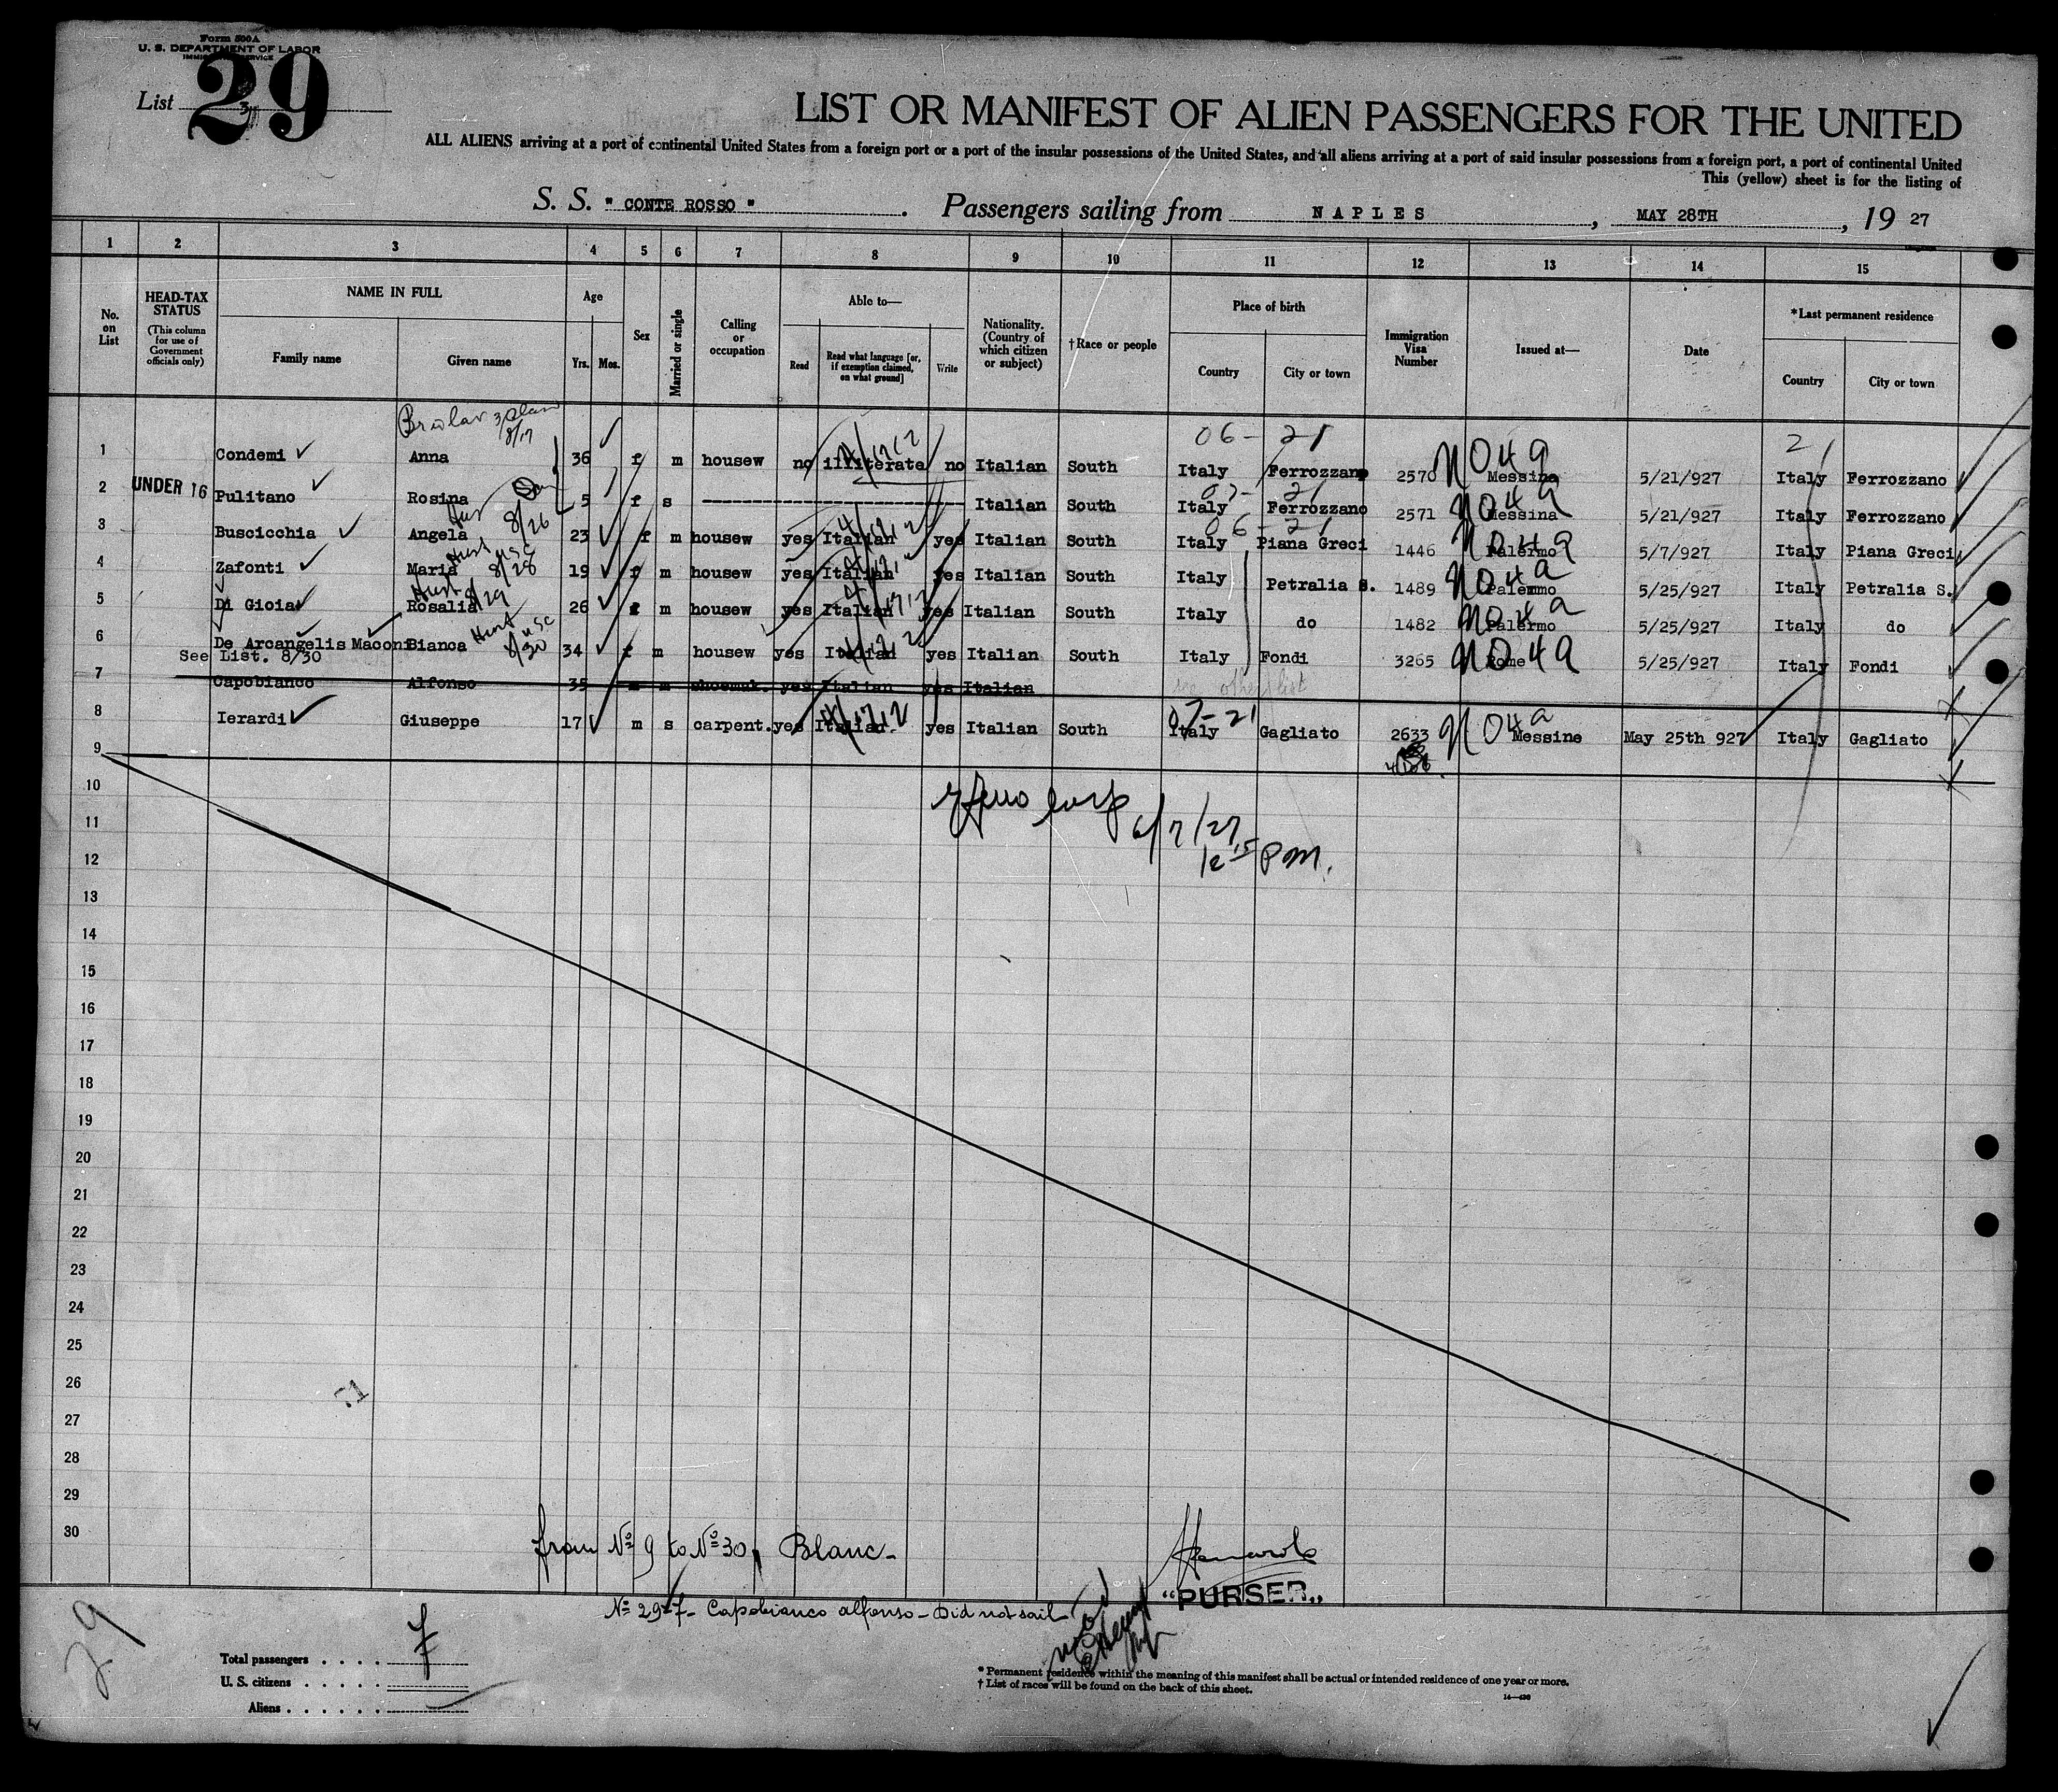 Form 500A
U. S. DEPARTMENT OF LABOR
List 29
LIST OR MANIFEST OF ALIEN PASSENGERS FOR THE UNITED
ALL ALIENS arriving at a port of continental United States from a foreign port or a port of the insular possessions of the United States, and all aliens arriving at a port of said insular possessions from a foreign port, a port of continental United
This (yellow) sheet is for the listing of
S. S. " CONTE ROSSO " . Passengers sailing from NAPLES , MAY 28TH , 19 27
1 2 3 4 5 6 7 8 9 10 11 12 13 14 15
No. on List
HEAD-TAX STATUS
(This column for use of Government officials only)
NAME IN FULL
Family name
Given name
Age
Yrs. Mos.
Sex
Married or single
Calling or occupation
Able to—
Read
Read what language [or, if exemption claimed, on what ground]
Write
Nationality. (Country of which citizen or subject)
†Race or people
Place of birth
Country
City or town
Immigration Visa Number
Issued at—
Date
*Last permanent residence
Country
City or town
8/17
06 - 21
1 Condemi Anna 36 f m housew no illiterate no Italian South Italy Ferrozzano 2570 Messina 5/21/927 Italy Ferrozzano
2 UNDER 16 Pulitano Rosina 5 f s Italian South Italy Ferrozzano 2571 Messina 5/21/927 Italy Ferrozzano
8/26
06 - 21
3 Buscicchia Angela 23 f m housew yes Italian yes Italian South Italy Piana Greci 1446 Palermo 5/7/927 Italy Piana Greci
8/28
4 Zafonti Maria 19 f m housew yes Italian yes Italian South Italy Petralia S. 1489 Palermo 5/25/927 Italy Petralia S.
8/29
5 Di Gioia Rosalia 26 f m housew yes Italian yes Italian South Italy do 1482 Palermo 5/25/927 Italy do
8/30
6 De Arcangelis Maconi Bianca 34 f m housew yes Italian yes Italian South Italy Fondi 3265 Rome 5/25/927 Italy Fondi
See List. 8/30
7 Capobianco Alfonso 35 m m shoemak. yes Italian yes Italian
see other list
07 - 21
8 Ierardi Giuseppe 17 m s carpent. yes Italian. yes Italian South Italy Gagliato 2633 Messine May 25th 927 Italy Gagliato
9
10
6/7/27
11
12 15 PM.
12
13
14
15
16
17
18
19
20
21
22
23
24
25
26
27
28
29
30
from Nº 9 to Nº 30, Blanc-
"PURSER"
Nº 29-7- Capobianco alfonso - Did not sail
29
Total passengers . . . . 7
U. S. citizens . . . . .
Aliens . . . . . .
* Permanent residence within the meaning of this manifest shall be actual or intended residence of one year or more.
† List of races will be found on the back of this sheet.